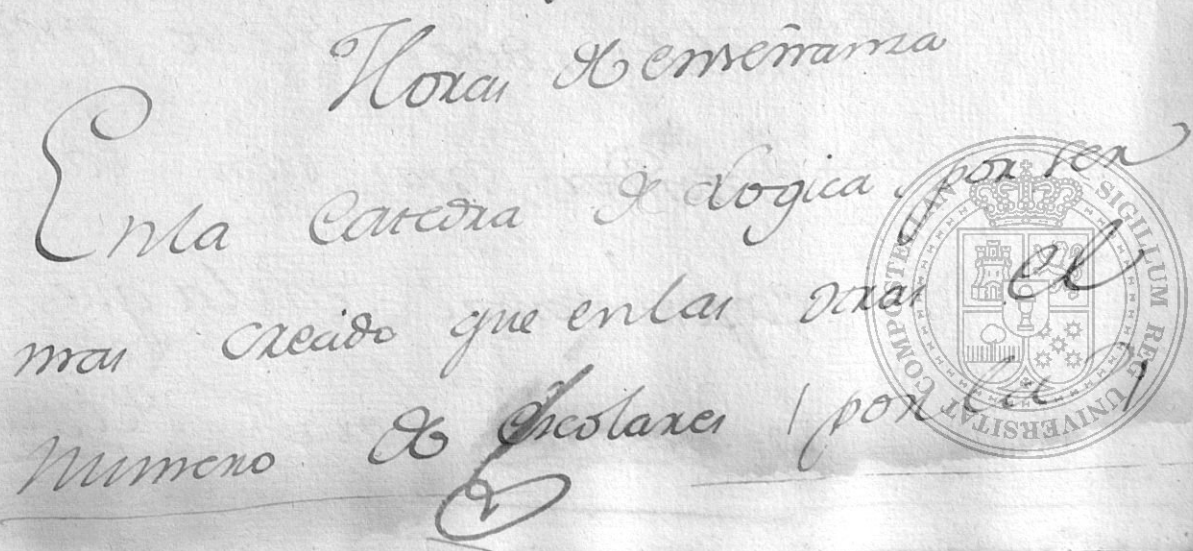 Horas de enseñanza
En la Catedra de Logica, por ser
mas crecido que en las otras el
numero de Escolares (por
SIGILLUM REG UNIVERSITAT COMPOSTELLAN